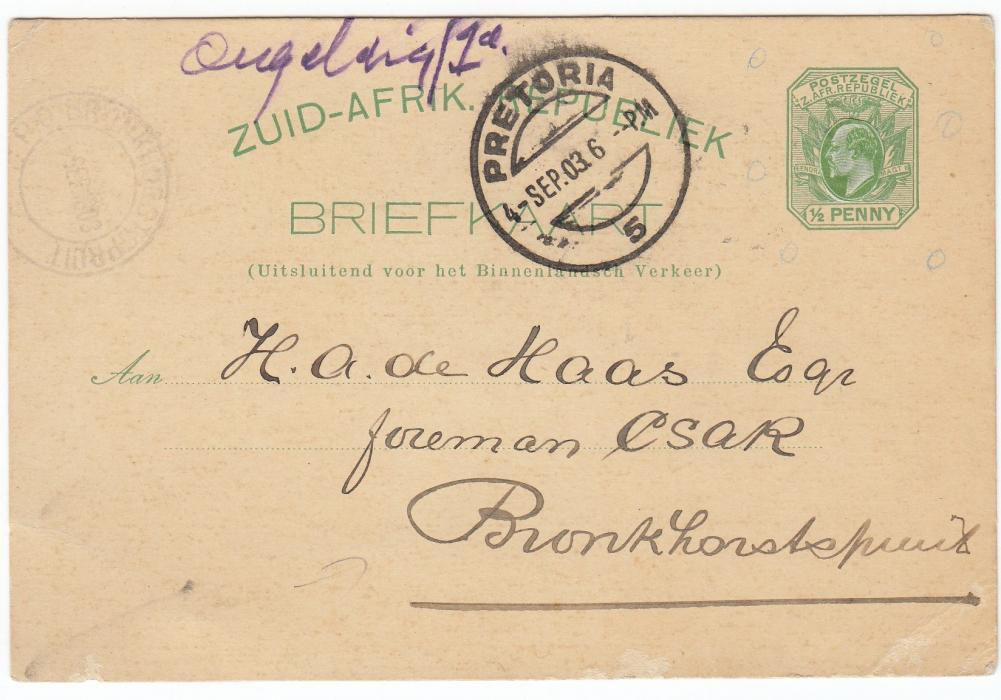 Ongeldig/1d.
POSTZEGEL
Z. AFR. REPUBLIEK
EENDRA MAGT
½ PENNY
ZUID-AFRIK. REPUBLIEK
PRETORIA
4-SEP.03.6-PM
5
BRIEFKAART
(Uitsluitend voor het Binnenlandsch Verkeer)
Aan H. A. de Haas Esqr
foreman CSAR
Bronkhorstspruit